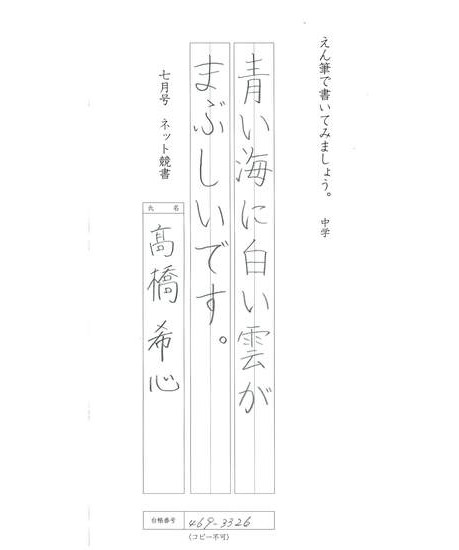 えん筆で書いてみましょう。 中学
青い海に白い雲が
まぶしいです。
七月号 ネット競書
氏 名
髙橋 希心
合格番号 469-3326
(コピー不可)